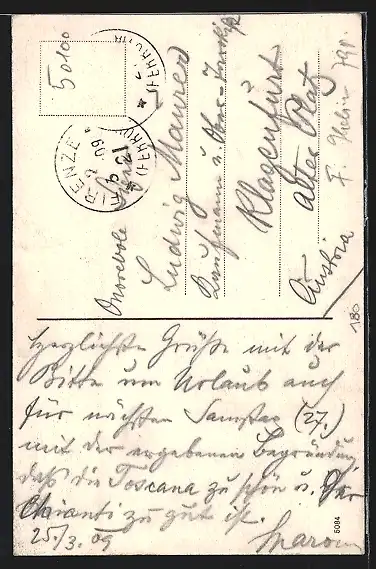 50100
FIRENZE
(FERROVIA)
09
Onorevole
Ludwig Maurer
Kaufmann u.
Klagenfurt
Alter Platz
Austria
180
Herzlichste Grüße mit der
Bitte um Urlaub auch
für nächsten Samstag (27.)
mit der ergebenen Begründung,
daß die Toscana zu schön u. der
Chianti zu gut ist.
25./3. 09
6084